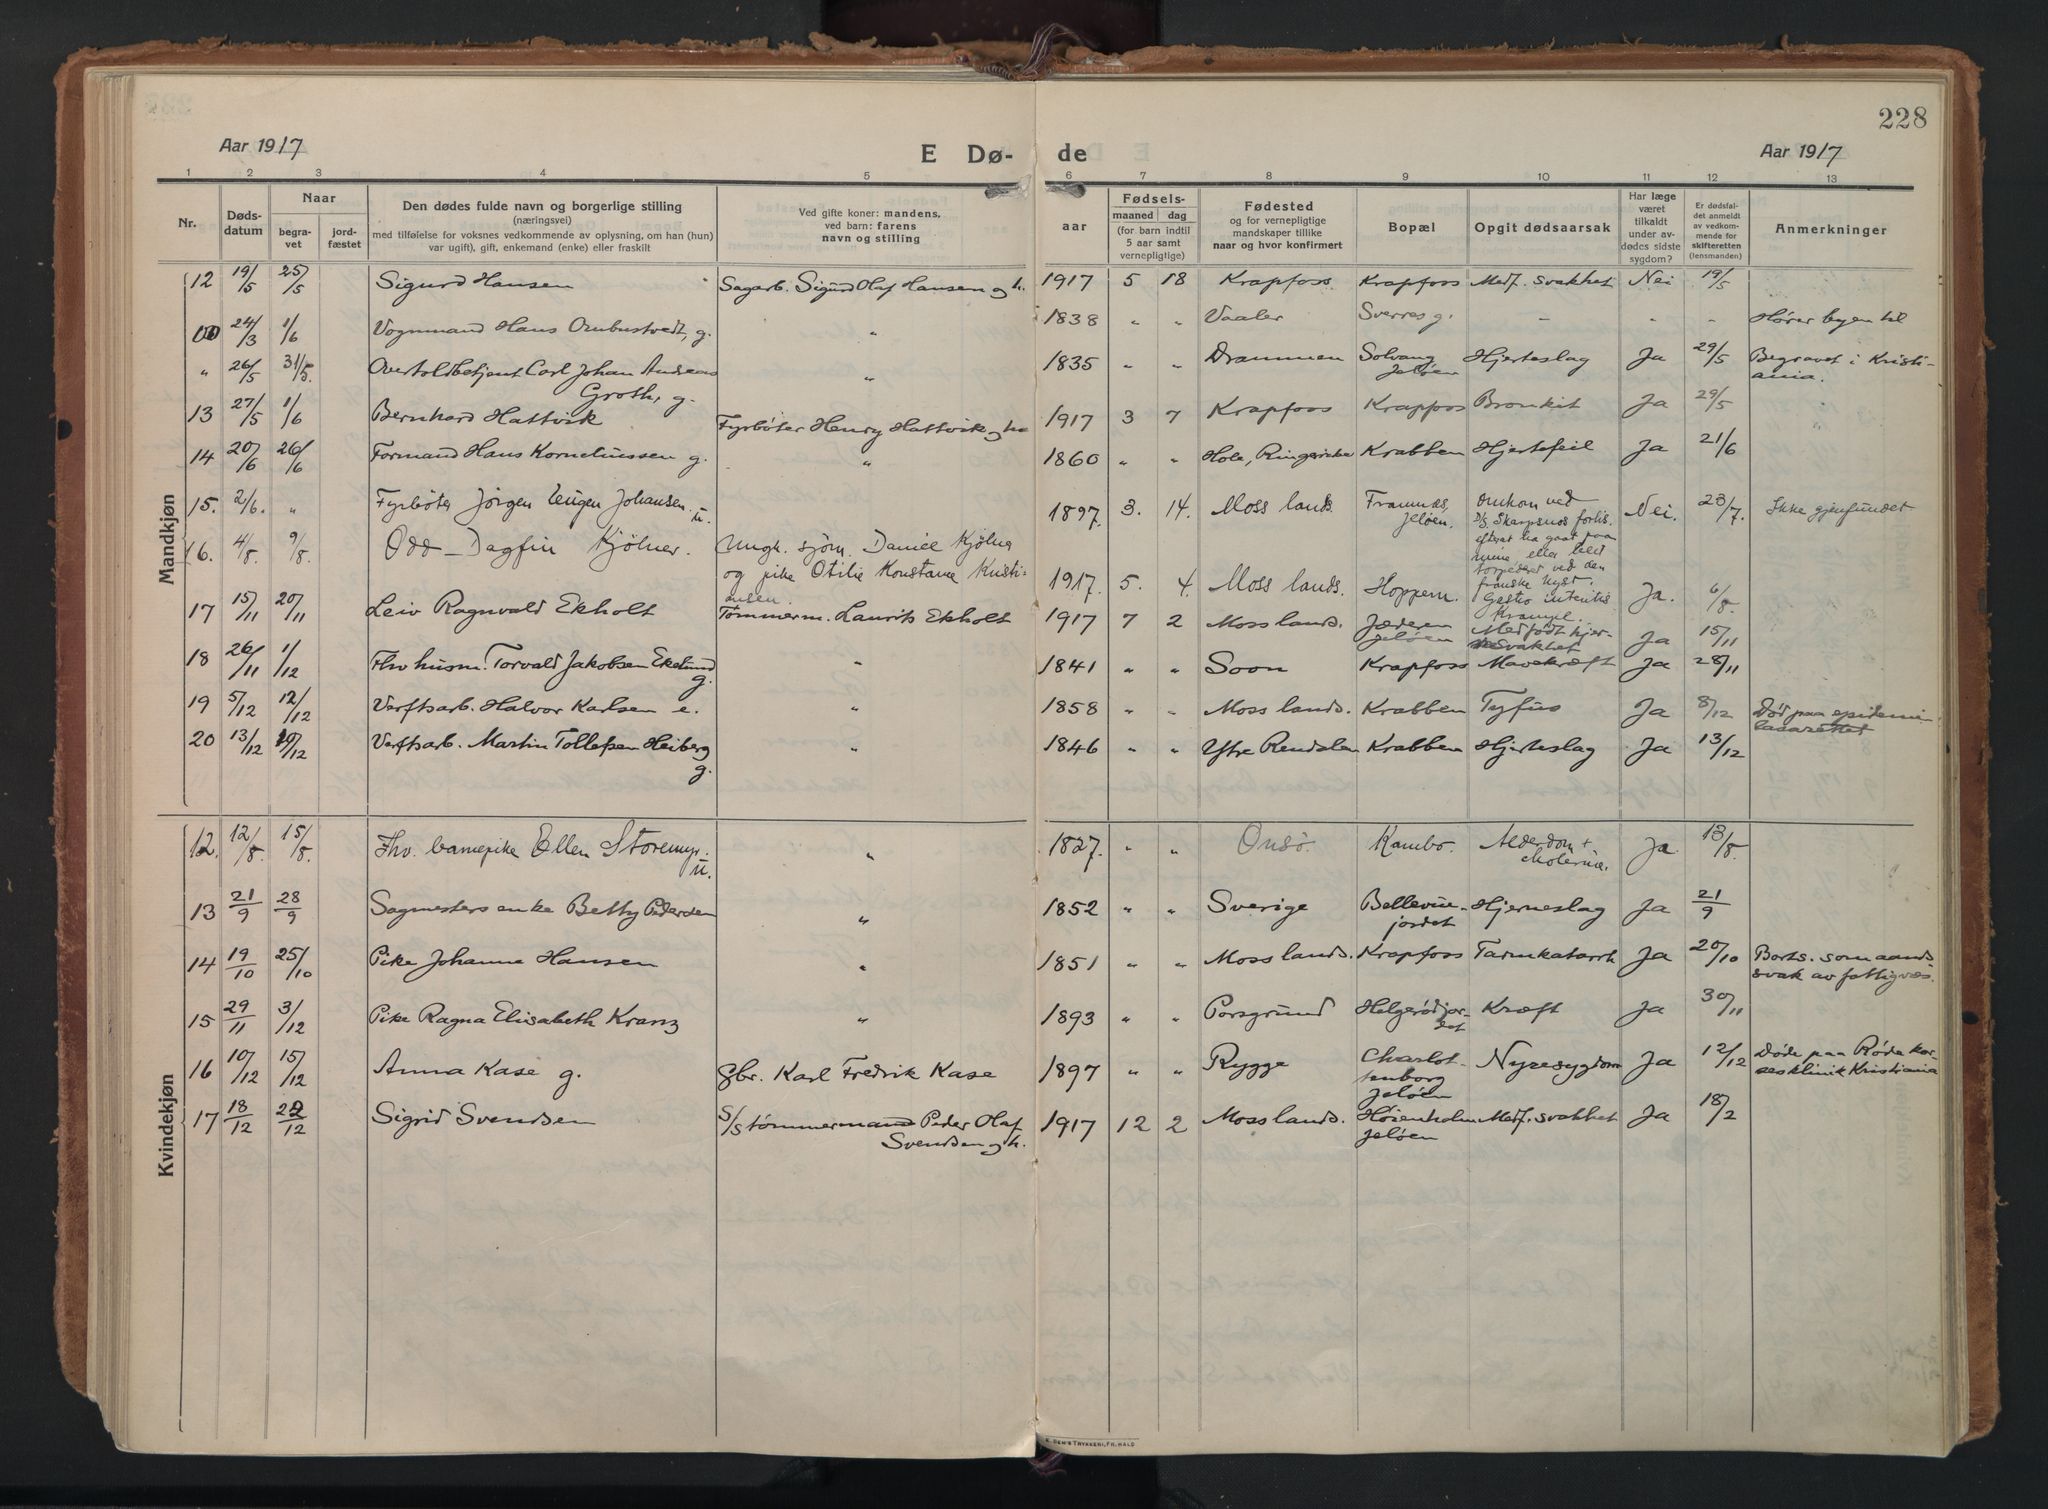 228
Aar 1917
E Dø-
de
Aar 1917
1 2 3 4 5 6 7 8 9 10 11 12 13
Nr.
Døds-
datum
Naar
begra-
vet
jord-
fæstet
Den dødes fulde navn og borgerlige stilling
(næringsvei)
med tilføielse for voksnes vedkommende av oplysning, om han (hun)
var ugift), gift, enkemand (enke) eller fraskilt
Ved gifte koner: mandens,
ved barn: farens
navn og stilling
aar
Fødsels-
maaned dag
(for barn indtil
5 aar samt
vernepligtige)
Fødested
og for vernepligtige
mandskaper tillike
naar og hvor konfirmert
Bopæl
Opgit dødsaarsak
Har læge
været
tilkaldt
under av-
dødes sidste
sygdom?
Er dødsfal-
det anmeldt
av vedkom-
mende for
skifteretten
(lensmanden)
Anmerkninger
Mandkjøn
12 19/5 25/5 Sigurd Hansen Sagarb. Sigurd Olaf Hansen og h. 1917 5 18 Krapfoss Krapfoss Medf. svakhet Nei 19/5
24/3 1/6 Vognmand Hans Ombustvedt, g. " 1838 " " Vaaler Sverres g. - - - Hører byen til
" 26/5 31/5. Overtoldbetjent Carl Johan Andreas " 1835 " " Drammen Solvang Hjerteslag Ja 29/5 Begravet i Kristi-
Groth, g. Jeløen ania.
13 27/5 1/6 Bernhard Hattvik Fyrbøter Henry Hattvik og h. 1917 3 7 Krapfoss Krapfoss Bronkit Ja 29/5
14 20/6 26/6 Formand Hans Kornelinssen g. " 1860 " " Hole, Ringerike Krabben Hjertefeil Ja 21/6
15. 2/6. " Fyrbøter Jørgen Eugen Johansen. u. 1897. 3. 14. Moss lands. Framnæs, Jeløen. Omkom ved Nei. 23/7. Ikke gjenfundet
D/S. Skarpsnos forlis.
efterat ha gaat paa
mine eller blit
torpederet ved den
franske kyst.
16. 4/8. 9/8. Odd-Dagfin Kjølner. Ungk. sjøm. Daniel Kjølner 1917. 5. 4. Moss lands. Hoppern. Gastro interitis Ja. 6/8.
og pike Otilie Konstanse Kristi- Krampe.
ansen.
17 15/11 20/11 Leiv Ragnvald Ekholt Tømmerm. Laurits Ekholt 1917 7 2 Moss lands. Jæderen Jeløen Medfødt hjer- Ja 15/11
tesvakhet
18 26/11 1/12 Fhv husm. Torvald Jakobsen Ekelund g. " 1841 " " Soon Krapfoss Mavekræft Ja 28/11
19 5/12 12/12 Verftsarb. Halvor Karlsen e. " 1858 " " Moss lands. Krabben Tyfus Ja 8/12 Død paa epidemi-
lasarettet
20 13/12 19/12 Verftsarb. Martin Tollefsen Heiberg g. " 1846 " " Ytre Rendalen Krabben Hjerteslag Ja 13/12
Kvindekjøn
12. 12/8. 15/8. Fhv. barnepike Ellen Storemyr. u. " 1827. " " Onsø. Kambo. Alderdom + Ja 13/8.
cholerine.
13 21/9 28/9 Sagmesters enke Betty Pedersen " 1852 " " Sverige Bellevue- Hjerneslag Ja 21/9
jordet
14 19/10 25/10 Pike Johanne Hansen " 1851 " " Moss lands. Krapfoss Tarmkatarrh Ja 20/10 Borts. som aands
svak av fattigvæs.
15 29/11 3/12 Pike Ragna Elisabeth Kranz " 1893 " " Porsgrund Helgerødjor- Kræft Ja 30/11
det
16 10/12 15/12 Anna Kase g. Gbr. Karl Fredrik Kase 1897 " " Rygge Charlot- Nyresygdom Ja 12/12 Døde paa Røde kor-
tenborg sesklinik Kristiania
Jeløen
17 18/12 22/12 Sigrid Svendsen S/S tømmermand Peder Olaf 1917 12 2 Moss lands. Høienholm Medf. svakhet Ja 18/2
Svendsen og h. Jeløen
E. SEM'S TRYKKERI, FR. HALD